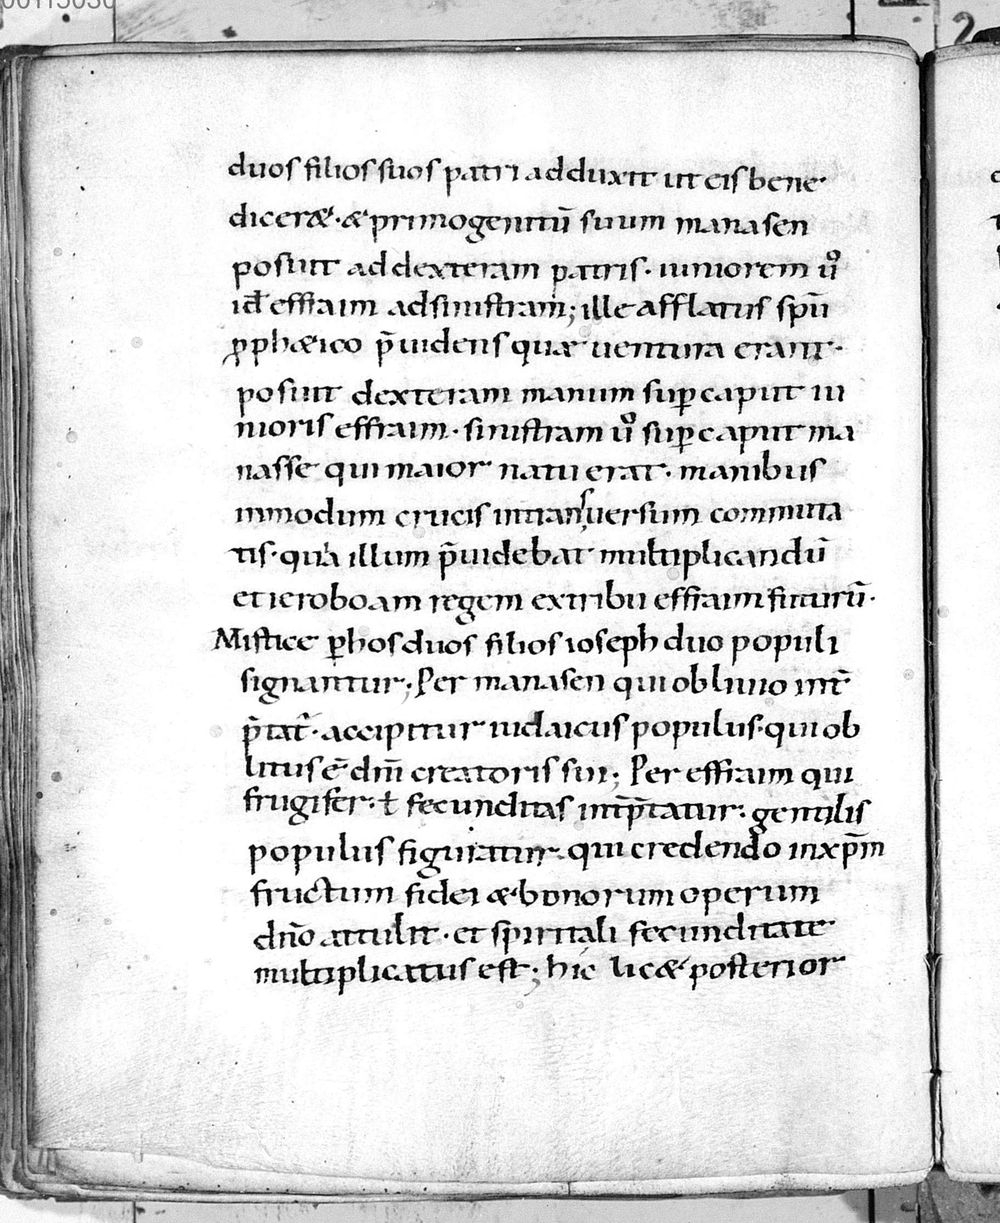 00115030
2
duos filios suos patri adduxit ut eis bene
dicer&·& primogenitū suum manasen
posuit ad dexteram patris· iuniorem ūo
id ē effraim ad sinistram; ille afflatus spū
ꝓph&ico p̄uidens quæ uentura erant·
posuit dexteram manum suꝑ caput iu
nioris effraim· sinistram ūo suꝑ caput ma
nasse qui maior natu erat· manibus
inmodum crucis intransuersum commuta
tis· quia illum p̄uidebat multiplicandū
et ieroboam regem extribu effraim futurū·
Mistice ꝑ hos duos filios ioseph duo populi
signantur; Per manasen qui obliuio int̄
p̄tat̄· accipitur iudaicus populus· qui ob
litus ē dn̄i creatoris sui; Per effraim qui
frugifer· ł fecunditas int̄p̄tatur· gentilis
populus figuratur· qui credendo in xp̄m
fructum fidei & bonorum operum
dn̄o attulit· et spiritali fecunditate
multiplicatus est; hic lic& posterior